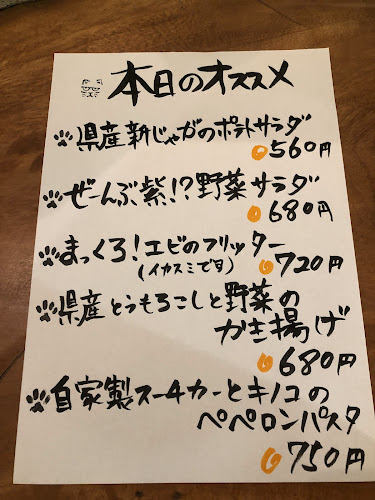 本日のオススメ
県産新じゃがのポテトサラダ
560円
ぜーんぶ紫!?野菜サラダ
680円
まっくろ!エビのフリッター
(イカスミです)
720円
県産とうもろこしと野菜の
かき揚げ
680円
自家製スーチカーとキノコの
ペペロンパスタ
750円